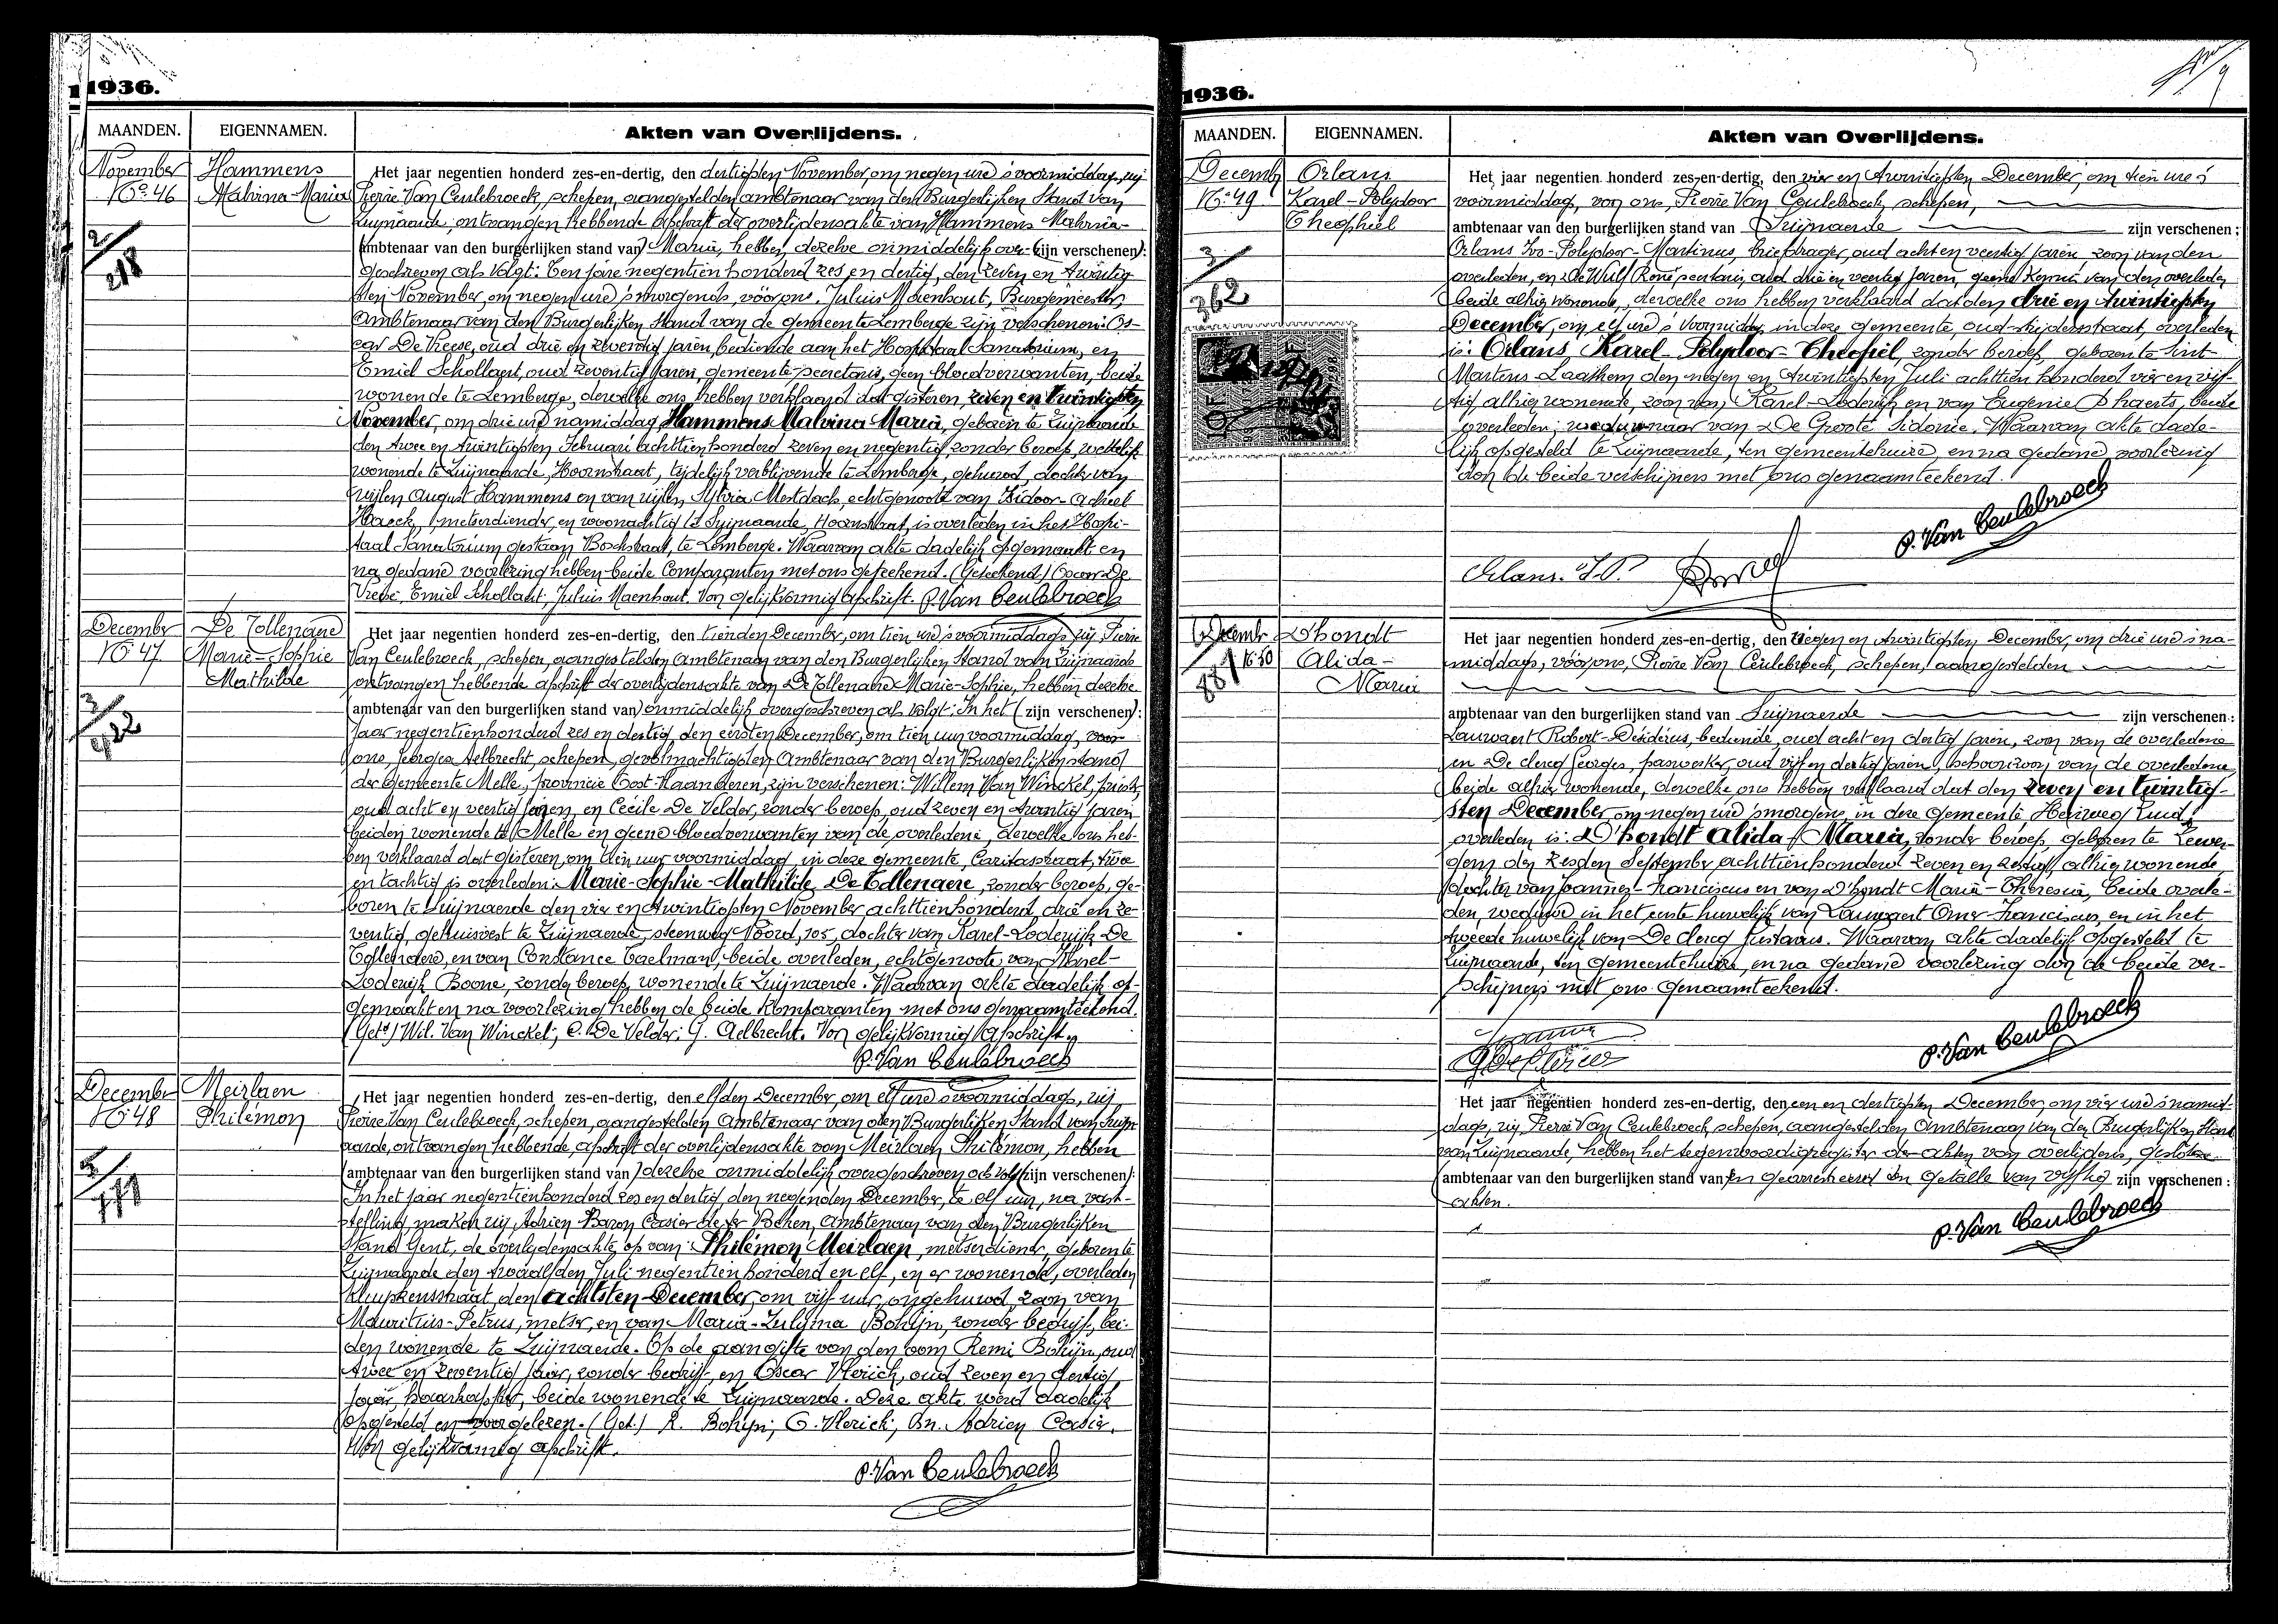 1936.
MAANDEN.
EIGENNAMEN.
Akten van Overlijdens.
November
No 46
Hammens
Malvina-Maria
2/218
Het jaar negentien honderd zes-en-dertig, den dertigsten November, om negen ure 's voormiddags, wij
Pierre Van Ceulebroeck, schepen, aangestelden ambtenaar van den Burgerlijken Stand van
Zwijnaarde, ontvangen hebbende afschrift der overlijdensakte van Hammens Malvina-
(ambtenaar van den burgerlijken stand van) Maria, hebben dezelve onmiddelijk over- (zijn verschenen):
geschreven als volgt: Ten jare negentien honderd zes en dertig, den zeven en twintig
sten November, om negen ure 's morgends, vóór ons, Juluis Maenhout, Burgemeester,
Ambtenaar van den Burgerlijken Stand van de gemeente Lemberge zijn verschenen: Os-
car De Vreese, oud drie en zeventig jaren, bediende aan het Hospitaal Sanatorium, en
Emiel Schollaert, oud zeventig jaren, gemeente-secretaris, geen bloedverwanten, beide
wonende te Lemberge, dewelke ons hebben verklaard dat gisteren, zeven en twintigsten
November, om drie ure namiddag Hammens Malvina Maria, geboren te Zwijnaarde
den twee en twintigsten Februari achttien honderd zeven en negentig, zonder beroep, wettelijk
wonende te Zwijnaarde, Hoornstraat, tijdelijk verblijvende te Lemberge, gehuwd, dochter van
wijlen August Hammens en van wijlen Sylvia Mestdach, echtgenoote van Isidoor-Achiel
Haeck, metserdiender, en woonachtig te Zwijnaarde, Hoornstraat, is overleden in het Hospi-
taal Sanatorium gestaan Boschstraat, te Lemberge. Waarvan akte dadelijk opgemaakt en
na gedane voorlezing hebben beide Comparanten met ons geteekend. (Geteekend) Oscar De
Vreese, Emiel Schollaert, Juluis Maenhout. Voor gelijkvormig afschrift. P. Van Ceulebroeck
December
No 47
De Tollenaere
Marie-Sophie
Mathilde
Het jaar negentien honderd zes-en-dertig, den tienden December, om tien ure 's voormiddags, wij Pierre
Van Ceulebroeck, schepen, aangestelden Ambtenaar van den Burgerlijken Stand van Zwijnaarde
ontvangen hebbende afschrift der overlijdensakte van De Tollenaere Marie-Sophie, hebben dezelve
(ambtenaar van den burgerlijken stand van) onmiddelijk overgeschreven als volgt: In het (zijn verschenen):
Jaar negentienhonderd zes en dertig, den eersten December, om tien uur voormiddag, voor
ons, Georges Aelbrecht, schepen, gevolmachtigden Ambtenaar van den Burgerlijken stand
der Gemeente Melle, provincie Oost-Vlaanderen, zijn verschenen: Willem Van Winckel, priester,
oud acht en veertig jaren, en Cecile De Velder, zonder beroep, oud zeven en twintig jaren
beiden wonende te Melle en geene bloedverwanten van de overledene, dewelke ons heb-
ben verklaard dat gisteren, om tien uur voormiddag, in deze gemeente, Caritasstraat, twee
en tachtig is overleden: Marie-Sophie-Mathilde De Tollenaere, zonder beroep, ge-
boren te Zwijnaerde den vier en twintigsten November achttienhonderd drie en ze-
ventig, gehuisvest te Zwijnaerde, steenweg Noord, 105, dochter van Karel-Lodewijk De
Tollenaere, en van Constance Taelman, beide overleden, echtgenoote van Karel-
Lodewijk Boone, zonder beroep, wonende te Zwijnaerde. Waarvan akte dadelijk op-
gemaakt en na voorlezing hebben de beide Komparanten met ons genaamteekend.
(Getd) Wil. Van Winckel; C. De Velder; G. Aelbrecht. Voor gelijkvormig Afschrift.
P. Van Ceulebroeck
December
No 48
Meirlaen
Philémon
Het jaar negentien honderd zes-en-dertig, den elfden December, om elf ure 's voormiddags, wij
Pierre Van Ceulebroeck, schepen, aangestelden Ambtenaar van den Burgerlijken Stand van Zwijn
aarde, ontvangen hebbende afschrift der overlijdensakte van Meirlaen Philémon, hebben
(ambtenaar van den burgerlijken stand van) dezelve onmiddelijk overgeschreven als volgt (zijn verschenen):
In het jaar negentienhonderd zes en dertig, den negenden December, te elf uur, na vast-
stelling maken wij, Adrien Baron Casier de ter Beken, Ambtenaar van den Burgerlijken
Stand Gent, de overlijdensakte op van: Philémon Meirlaen, metserdiener, geboren te
Zwijnaarde den twaalfden Juli negentien honderd en elf, en er wonende, overleden
Kluyskensstraat, den achtsten December, om vijf uur, ongehuwd, zoon van
Mauritius-Petrus, metser, en van Maria-Zulyma Bohijn, zonder bedrijf, bei-
den wonende te Zwijnaerde. Op de aangifte van den oom Remi Bohijn, oud
twee en zeventig jaar, zonder bedrijf, en Oscar Vlerick, oud zeven en dertig
jaar, haarkapper, beide wonende te Zwijnaarde. Deze akte werd dadelijk
opgesteld en voorgelezen. (Get.) R. Bohijn; O. Vlerick; Bn. Adrien Casier.
Voor gelijkvormig afschrift.
P. Van Ceulebroeck
1936.
MAANDEN.
EIGENNAMEN.
Akten van Overlijdens.
Decemb
No 49
Orlans
Karel-Polydoor
Theophiel
3/362
10F
Het jaar negentien honderd zes-en-dertig, den vier en twintigsten December, om tien ure 's
voormiddag, voor ons, Pierre Van Ceulebroeck, schepen,
ambtenaar van den burgerlijken stand van Zwijnaerde zijn verschenen:
Orlans Ivo-Polydoor-Martinus, briefdrager, oud acht en veertig jaren, zoon van den
overleden, en De Wulf René, secretaris, oud drie en veertig jaren, goede kennis van den overleden
beide alhier wonende, dewelke ons hebben verklaard dat den drie en twintigsten
December, om elf ure 's voormiddag, in deze gemeente, oud-strijdersstraat, overleden
is: Orlans, Karel-Polydoor-Theophiel, zonder beroep, geboren te Sint-
Martens-Laathem den negen en twintigsten Juli achttien honderd vier en vijf-
tig, alhier wonende, zoon van Karel-Lodewijk en van Eugenie Dhaerts, beide
overleden; weduwnaar van De Groote Sidonie. Waarvan akte dade-
lijk opgesteld te Zwijnaarde, ten gemeentehuize, en na gedane voorlezing
door de beide verschijners met ons genaamteekend.
P. Van Ceulebroeck
Orlans. I.P.
Decemb
No 50
Dhondt
Alida-
Maria
Het jaar negentien honderd zes-en-dertig, den negen en twintigsten December, om drie ure 's na-
middags, vóór ons, Pierre Van Ceulebroeck, schepen, aangestelden
ambtenaar van den burgerlijken stand van Zwijnaerde zijn verschenen:
Lauwaert Robert-Desiderius, bediende, oud acht en dertig jaren, zoon van de overledene
en De clercq Georges, paswerker, oud vijf en dertig jaren, schoonzoon van de overledene
beide alhier wonende, dewelke ons hebben verklaard dat den zeven en twintig-
sten December om negen ure 's morgens, in deze gemeente, Heirweg Zuid,
overleden is: D'hondt Alida-Maria, zonder beroep, geboren te Zever-
gem den zesden September achttienhonderd zeven en zestig, alhier wonende
dochter van Joannes-Franciscus en van D'hondt Maria-Theresia, beide overle-
den, weduwe in het eerste huwelijk van Lauwaert Omer-Franciscus, en in het
tweede huwelijk van De clercq Gustavus. Waarvan akte dadelijk opgesteld te
Zwijnaarde, ten gemeentehuize, en na gedane voorlezing door de beide ver-
schijners met ons genaamteekend.
P. Van Ceulebroeck
Het jaar negentien honderd zes-en-dertig, den een en dertigsten December, om vier ure 's namid-
dags, wij Pierre Van Ceulebroeck, schepen, aangestelden Ambtenaar van den Burgerlijken Stand
van Zwijnaarde, hebben het tegenwoordig register der akten van overlijdens, gesloten
(ambtenaar van den burgerlijken stand van) en gearresteerd ten getalle van vijftig zijn verschenen:
akten.
P. Van Ceulebroeck